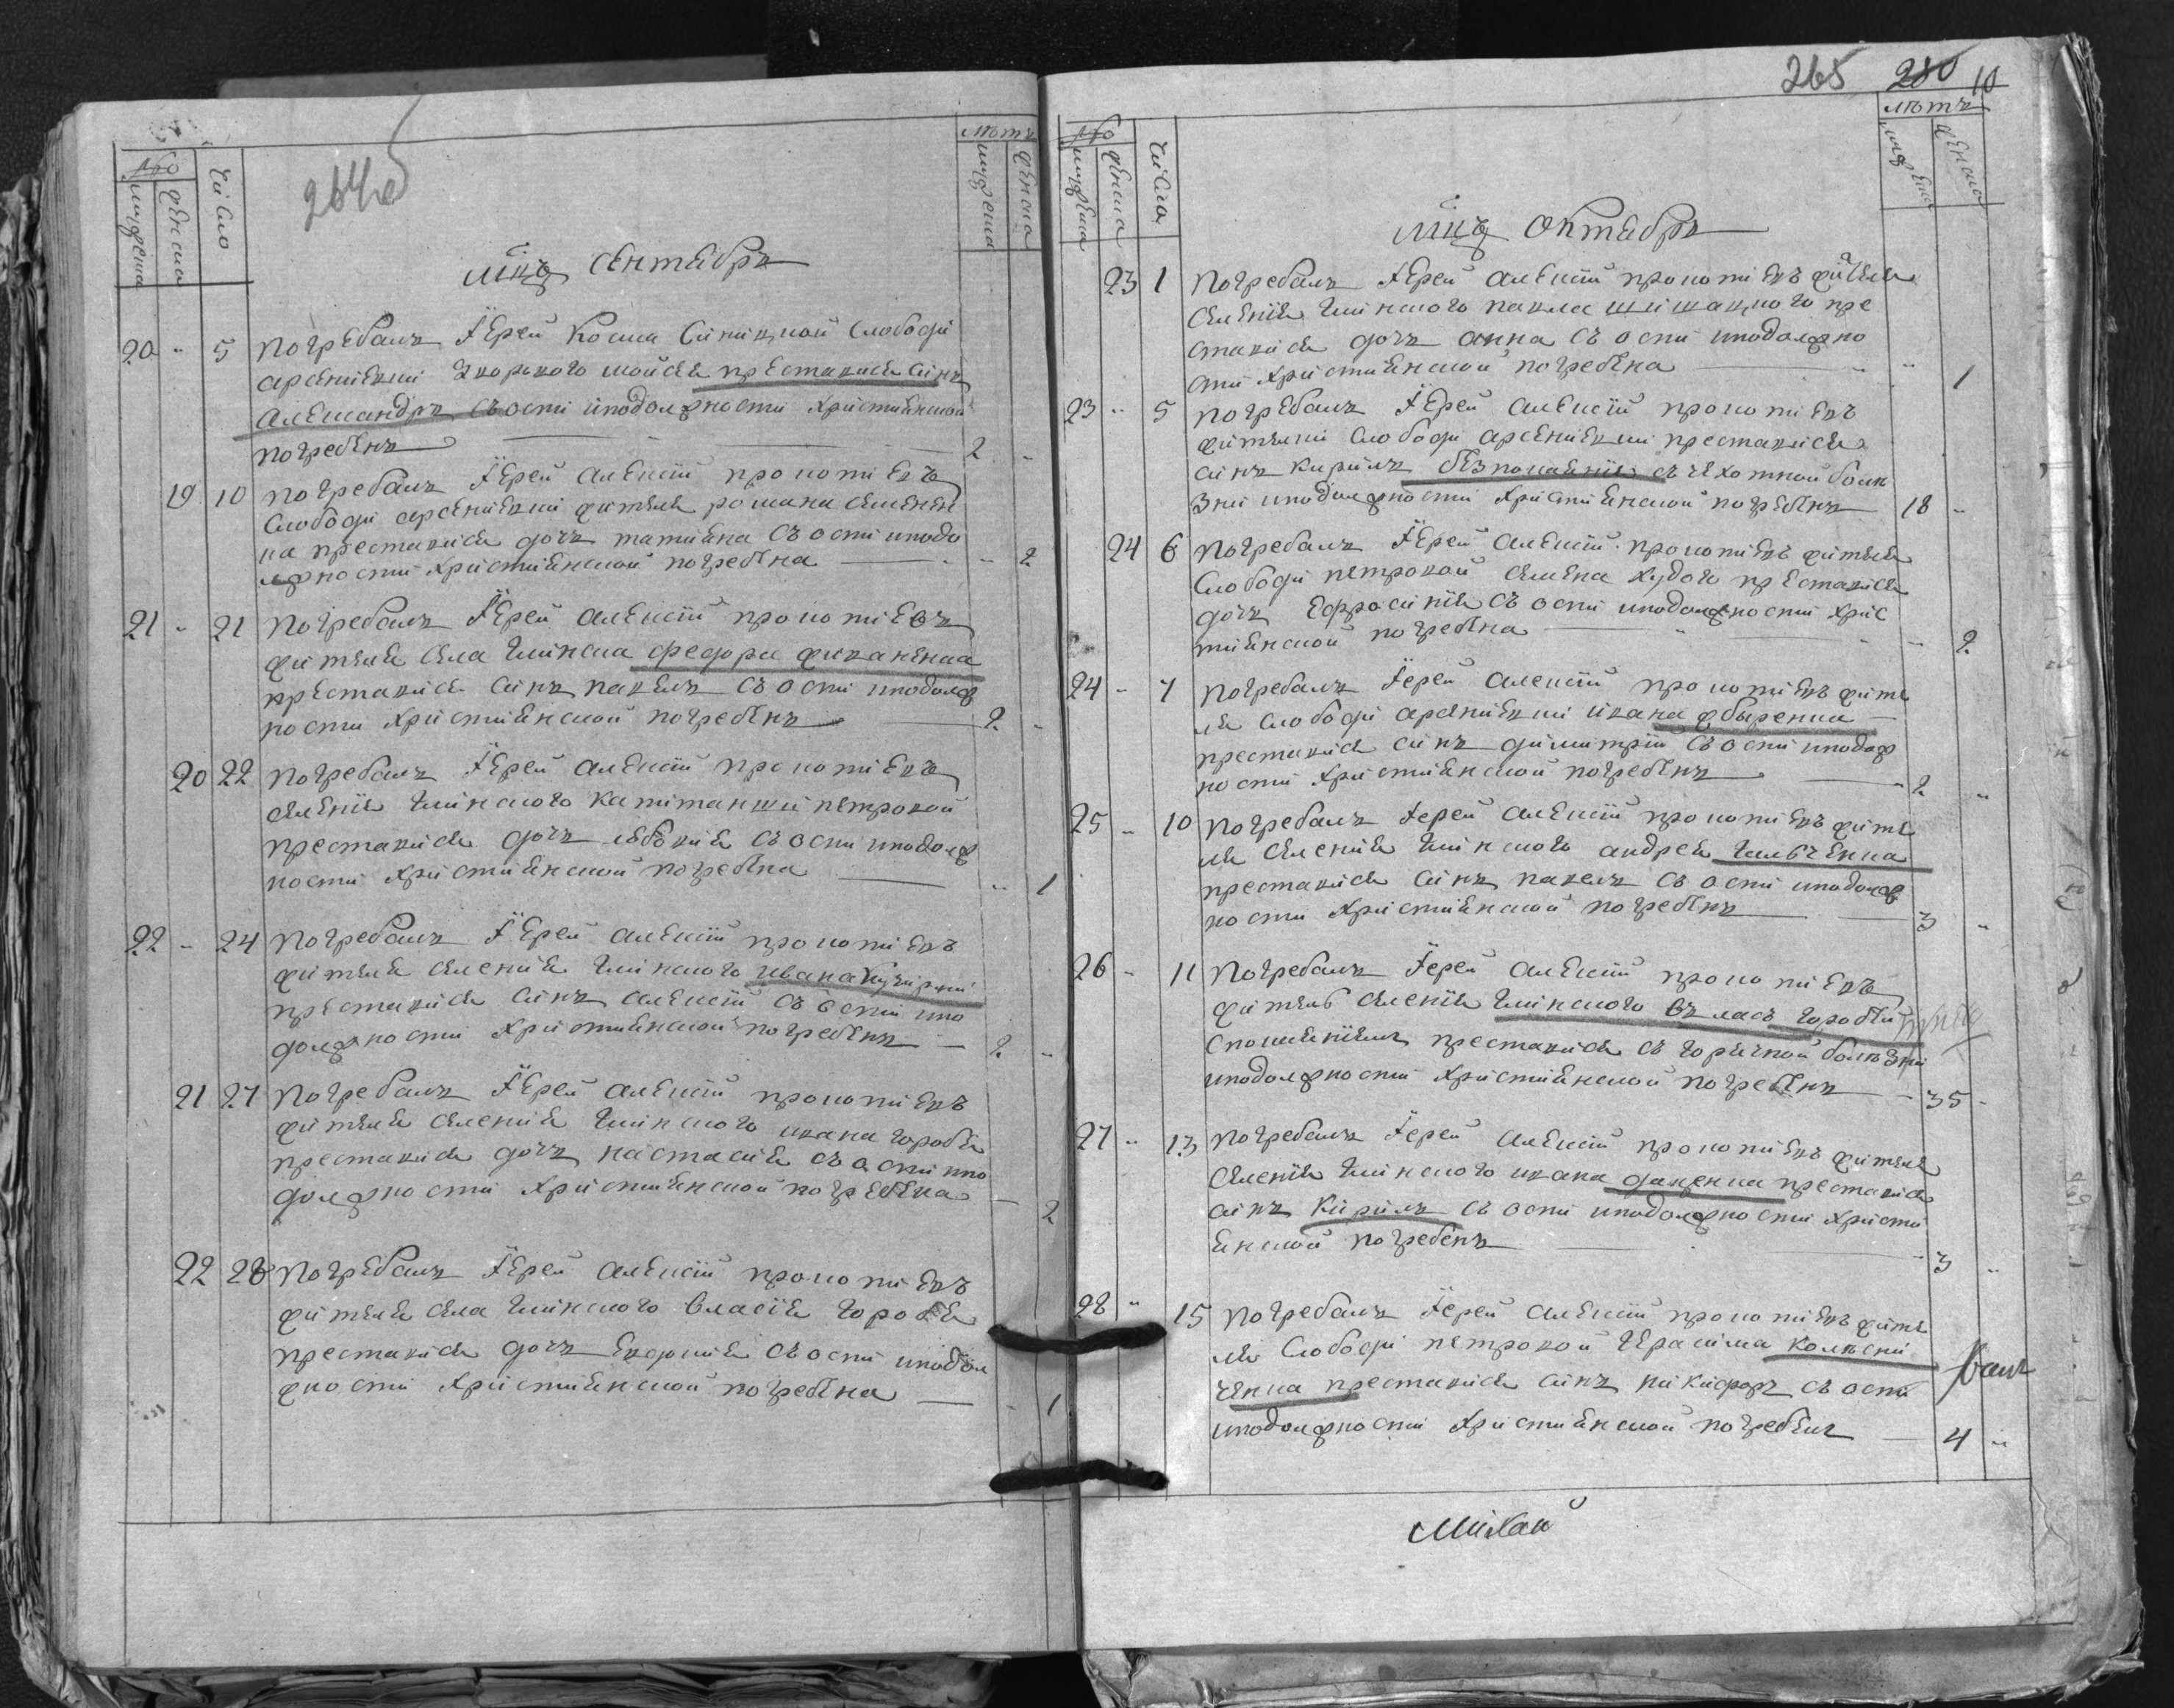 264об
№
мужеска
женска
Число
лѣтъ
мужеска
женска
мцъ сентабръ
20 " 5 Погребалъ Іерей Косма Синицкой слободи
Арсениевки Зкорького мойсея преставися синъ
Александръ съ оспи иподолжности християнской
погребенъ 2 "
19 10 погребалъ Іерей алексій прокопиевъ
слободи арсениевки жителя романа семенен
ка преставися дочъ татияна съ оспи иподо
лжности християнской погребена " 2
21 " 21 Погребалъ Іерей алексій прокопиевъ
жителя села глинска федора живаненка
преставися синъ павелъ съ оспи иподолж
ности християнской погребенъ 2 "
20 22 погребалъ Іерей алексій прокопиевъ
селенія глинского капитанши петровой
преставися дочъ любовия съ оспи иподолж
ности християнской погребена " 1
22 " 24 погребалъ Іерей алексій прокопиевъ
жителя селения глинского ивана
преставися синъ алексій съ оспи ипо
должности християнской погребенъ 2 "
21 27 погребалъ Іерей алексій прокопиевъ
жителя селения глинского ивана горобея
преставися дочъ настасия съ оспи ипо
должности християнской погребена 2
22 28 погребалъ Іерей алексій прокопиевъ
жителя села глинского власія горобея
преставися дочъ евдокия съ оспи иподол
жности християнской погребена " 1
265 280 10
№
мужеска
женска
Числа
лѣтъ
мужеска
женска
мцъ октабръ
23 1 погребалъ Іерей алексій прокопиевъ жителя
селенія глинского павла шишацкого пре
ставися дочъ анна съ оспи иподолжно
сти християнской погребена " 1
23 " 5 погребалъ Іерей алексій прокопиевъ
жителки слободи арсениевки преставися
синъ кирилъ безпокаянія съ чехотной болѣ
зни иподолжности християнской погребенъ 18 "
24 6 погребалъ Іерей алексій прокопиевъ жителя
слободи петровой семена худого преставися
дочъ ефросиния съ оспи иподолжности хрис
тиянской погребена " 2
24 " 7 погребалъ Іерей алексій прокопиевъ жите
ля слободи арсениевки ивана
преставися синъ димитрій съ оспи иподолж
ности християнской погребенъ 2 "
25 " 10 погребалъ Іерей алексій прокопиевъ жите
ля селения глинского андрея
преставися синъ павелъ съ оспи иподолж
ности християнской погребенъ 3 "
26 " 11 погребалъ Іерей алексій прокопиевъ
житель селенія глинского власъ горобей
споканніемъ преставися съ горячкой болѣзни
иподолжности християнской погребенъ 35 "
27 " 13 погребалъ Іерей алексій прокопиевъ жителя
селенія глинского ивана даценка преставися
синъ Кирилъ съ оспи иподолжности христи
янской погребенъ 3 "
28 " 15 погребалъ Іерей алексій прокопиевъ жите
ля слободи петровой герасима колесни
ченка преставися синъ никифоръ съ оспи
иподолжности християнской погребенъ 4 "